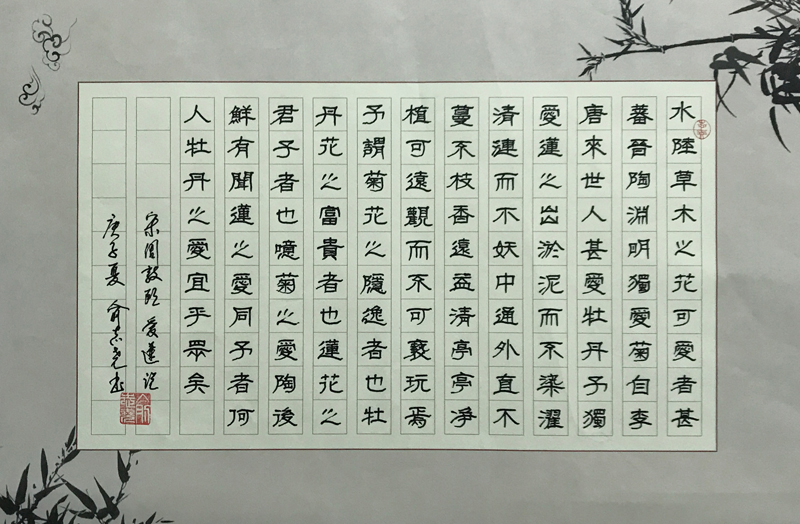 水陸草木之花可愛者甚
蕃晉陶淵明獨愛菊自李
唐來世人甚愛牡丹予獨
愛蓮之出淤泥而不染濯
清漣而不妖中通外直不
蔓不枝香遠益清亭亭淨
植可遠觀而不可褻玩焉
予謂菊花之隱逸者也牡
丹花之富貴者也蓮花之
君子者也噫菊之愛陶後
鮮有聞蓮之愛同予者何
人牡丹之愛宜乎眾矣
宋周敦頤愛蓮說
庚子夏俞志堯書